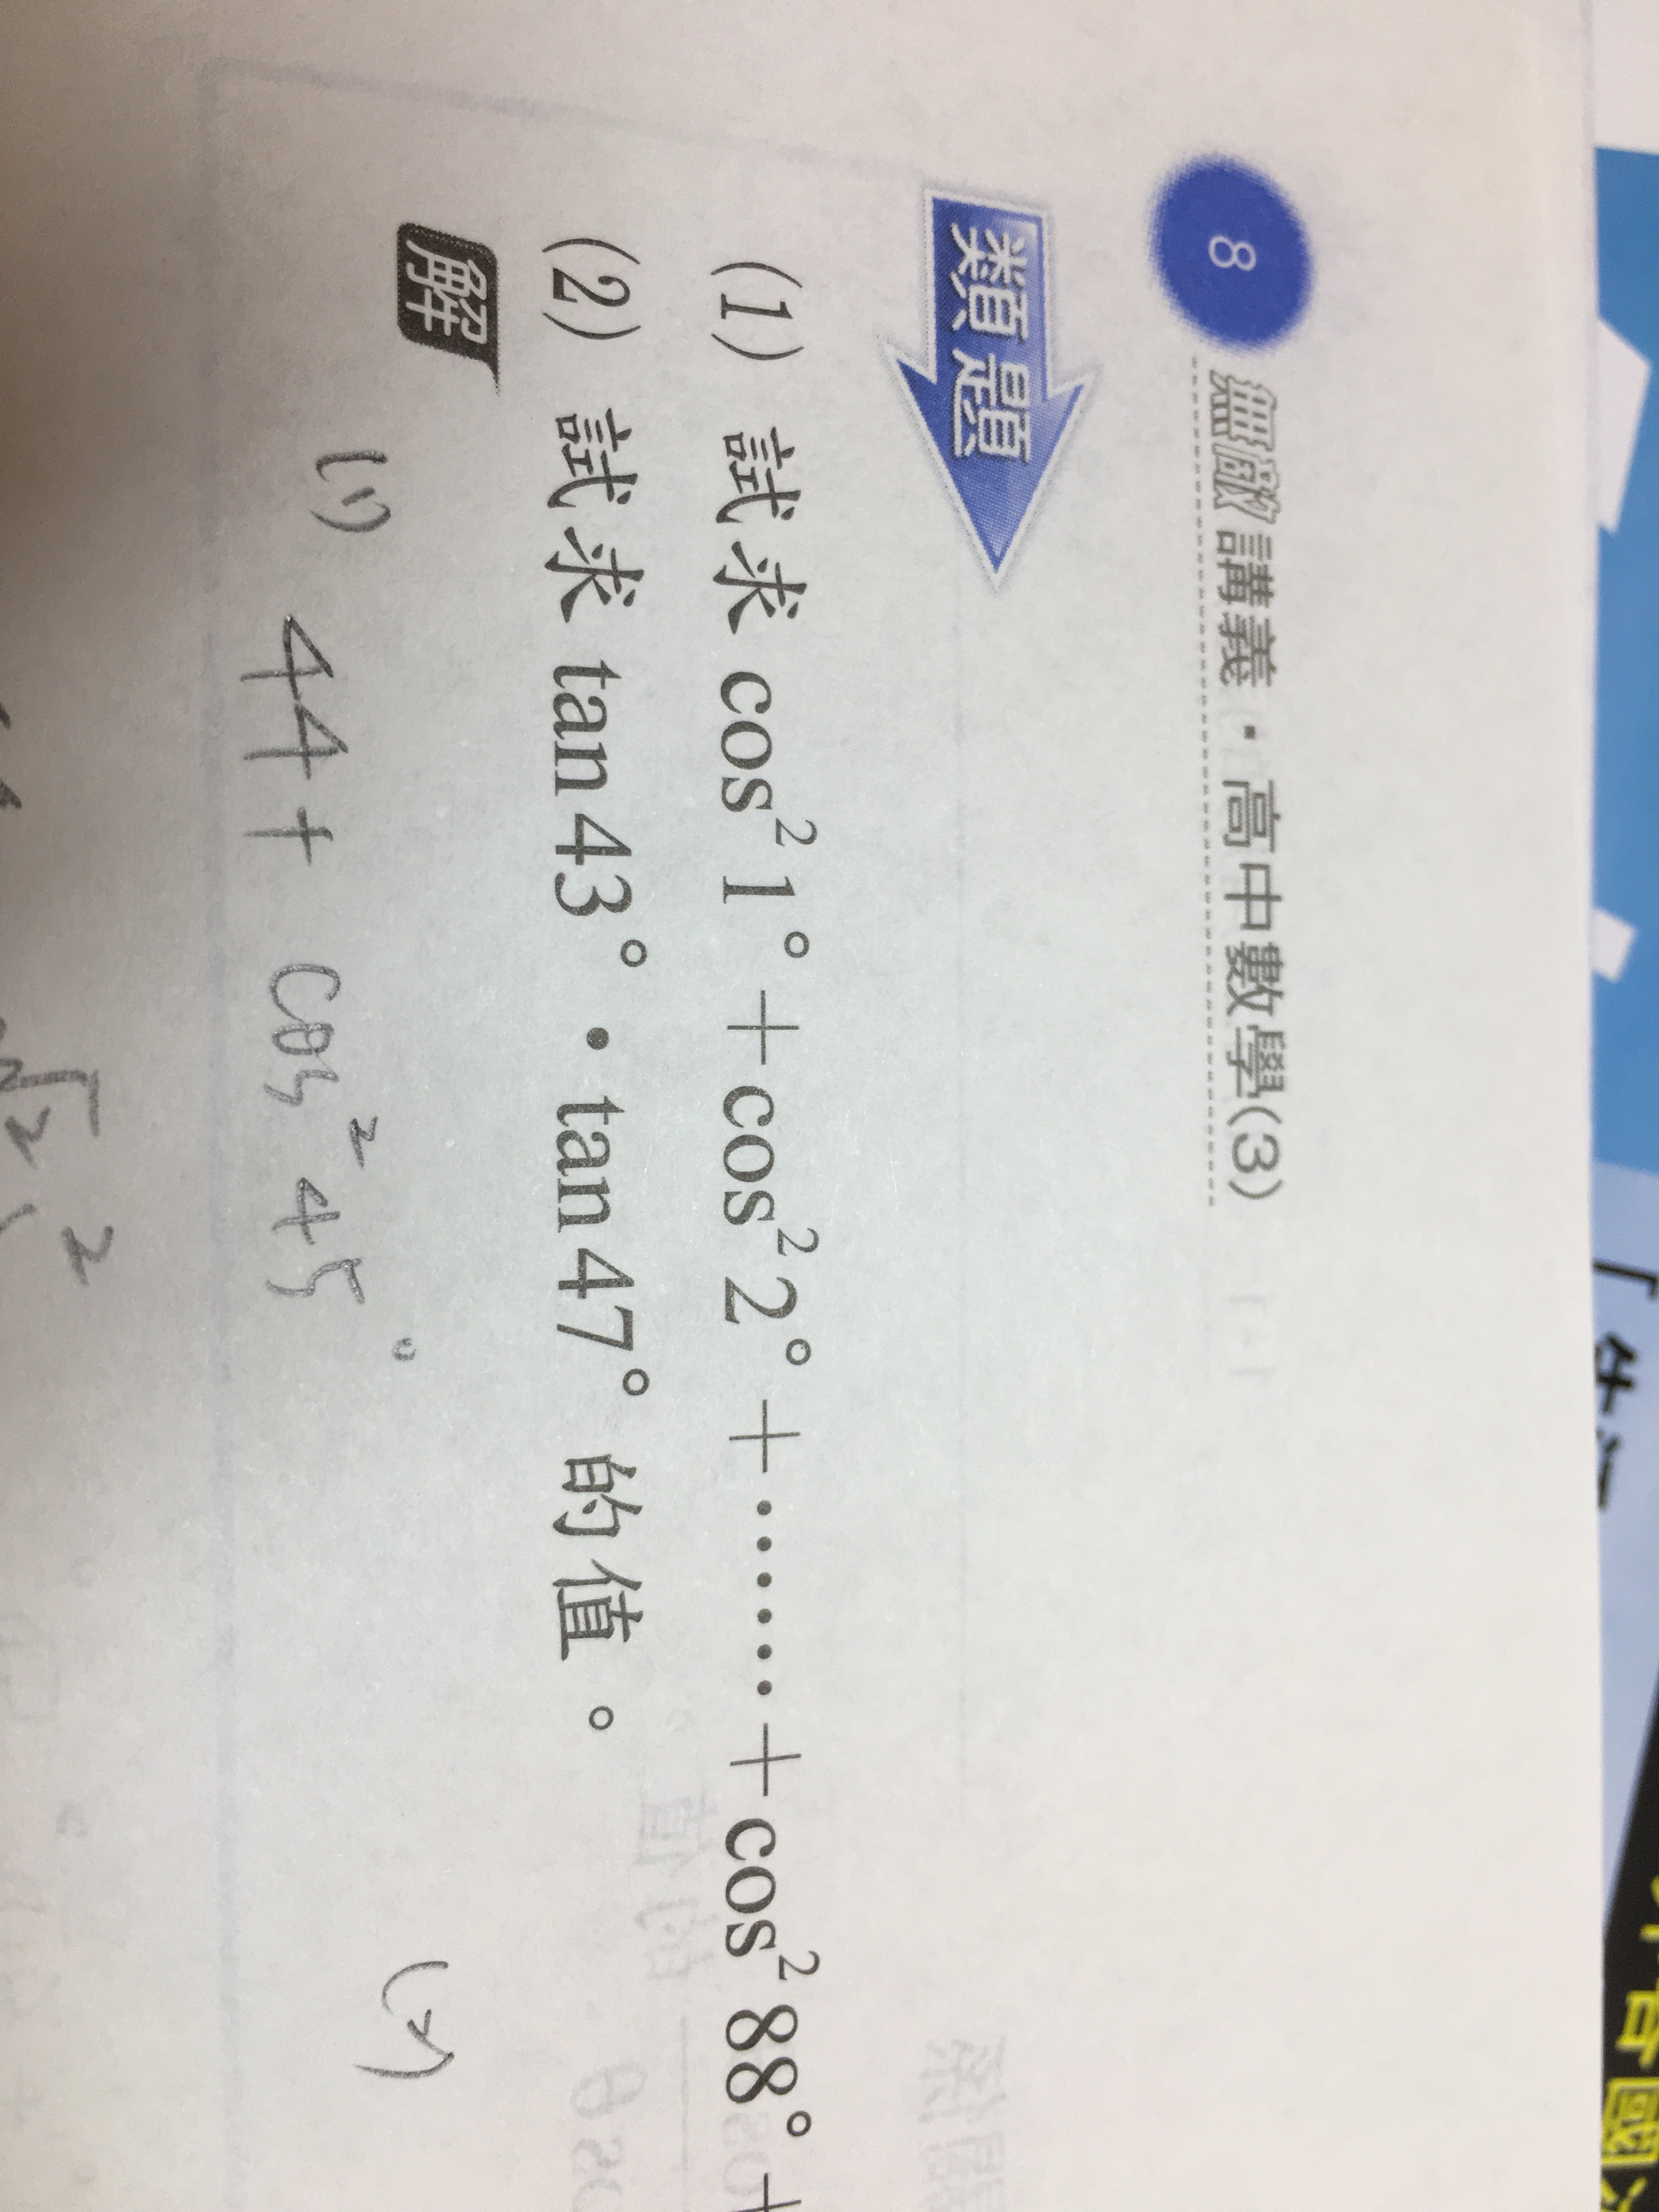 8 無敵講義・高中數學(3)
類題
(1) 試求 cos² 1° + cos² 2° + …… + cos² 88° +
(2) 試求 tan 43° · tan 47° 的值。
解
(1) 44 + cos² 45°
(2)
√2 ²